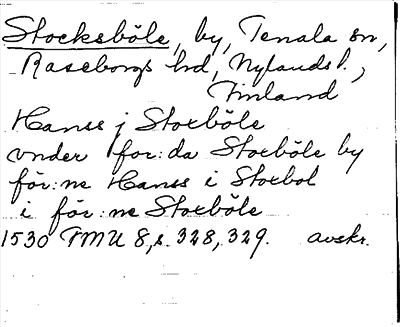 Stocksböle, by, Tenala sn,
Raseborgs hd, Nylands l.,
Finland
Hanss j Stoxböle
vnder for:da Stoxböle by
för:ne Hanss i Stoxbol
i för:ne Stoxböle
1530 FMU 8, s. 328, 329. avskr.